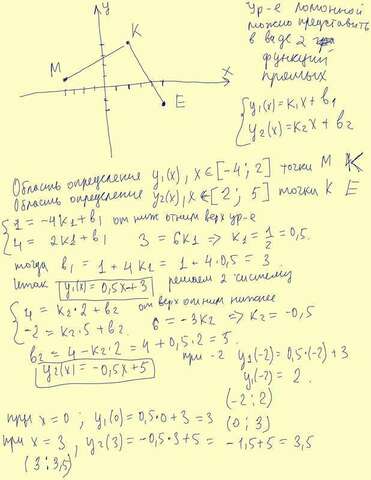 y
x
M
K
E
Ур-е ломонной
можно представить
в виде 2
функций
прямых
y₁(x)=k₁x+b₁
y₂(x)=k₂x+b₂
Область определения y₁(x), x∈[-4; 2] точки M K
Область определения y₂(x), x∈[2; 5] точки K E
1=-4k1+b1 от ниж отним верх ур-е
4= 2k1+b1 3=6k1 => k1=1/2=0,5.
тогда b1=1+4k1=1+4·0,5=3
Итак y₁(x)=0,5x+3 решаем 2 систему
4=k2·2+b2 от верх отним нижнее
-2=k2·5+b2. 6=-3k2 => k2=-0,5
b2=4-k2·2=4+0,5·2=5.
y2(x)=-0,5x+5
при -2 y₁(-2)=0,5·(-2)+3
y₁(-2)=2.
(-2;2)
при x=0; y₁(0)=0,5·0+3=3 (0;3)
при x=3, y2(3)=-0,5·3+5=-1,5+5=3,5
(3;3,5)